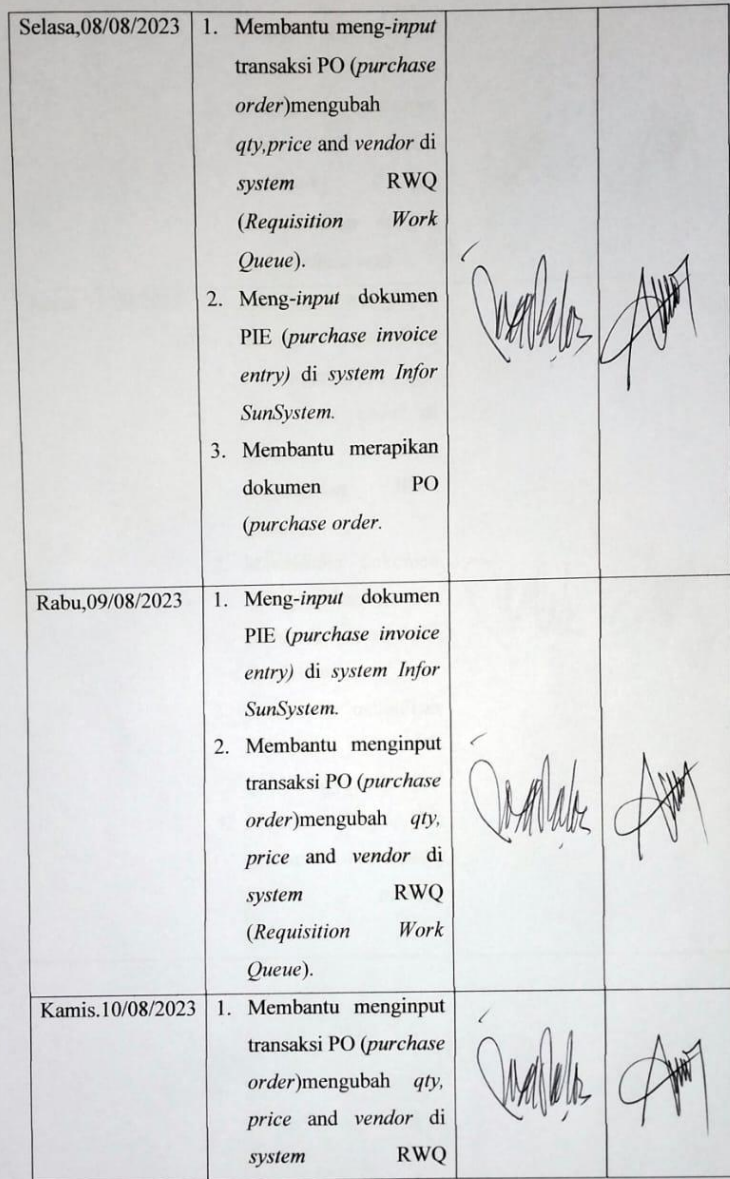 Selasa,08/08/2023
1. Membantu meng-input
transaksi PO (purchase
order)mengubah
qty,price and vendor di
system RWQ
(Requisition Work
Queue).
2. Meng-input dokumen
PIE (purchase invoice
entry) di system Infor
SunSystem.
3. Membantu merapikan
dokumen PO
(purchase order.
Rabu,09/08/2023
1. Meng-input dokumen
PIE (purchase invoice
entry) di system Infor
SunSystem.
2. Membantu menginput
transaksi PO (purchase
order)mengubah qty,
price and vendor di
system RWQ
(Requisition Work
Queue).
Kamis.10/08/2023
1. Membantu menginput
transaksi PO (purchase
order)mengubah qty,
price and vendor di
system RWQ